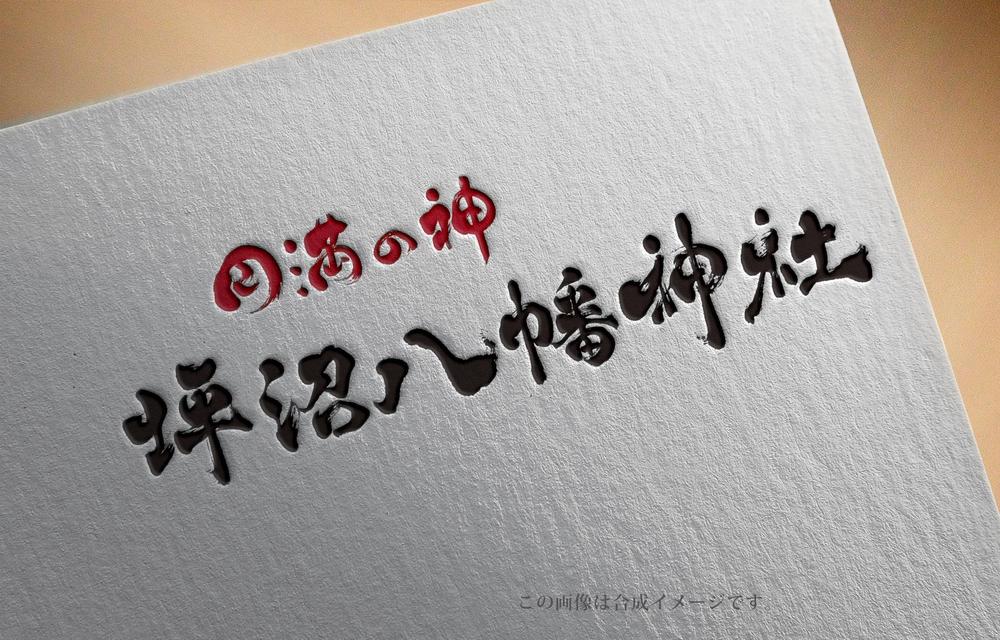 円満の神
坪沼八幡神社
この画像は合成イメージです